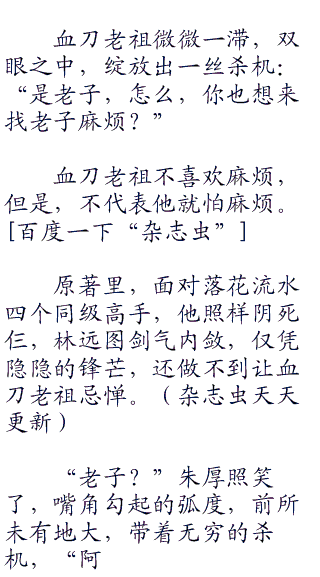 血刀老祖微微一滞，双
眼之中，绽放出一丝杀机：
“是老子，怎么，你也想来
找老子麻烦？”
血刀老祖不喜欢麻烦，
但是，不代表他就怕麻烦。
[百度一下“杂志虫”]
原著里，面对落花流水
四个同级高手，他照样阴死
仨，林远图剑气内敛，仅凭
隐隐的锋芒，还做不到让血
刀老祖忌惮。（杂志虫天天
更新）
“老子？”朱厚照笑
了，嘴角勾起的弧度，前所
未有地大，带着无穷的杀
机，“阿